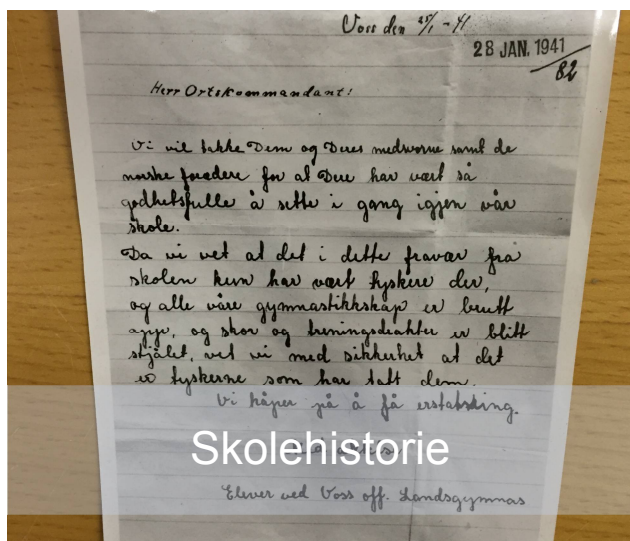 Voss den 25/1 - 41
28 JAN. 1941
82
Herr Ortskommandant!
Vi vil takke Dem og Deres medsvorne samt de
norske forædere for at Dere har vært så
godhetsfulle å sette i gang igjen vår
skole.
Da vi vet at det i dette fravær fra
skolen kun har vært tyskere der,
og alle våre gymnastikkskap er brutt
opp, og skor og treningsdrakter er blitt
stjålet, vet vi med sikkerhet at det
er tyskerne som har tatt dem.
Vi håper på å få erstatning.
Skolehistorie
Elever ved Voss off. Landsgymnas